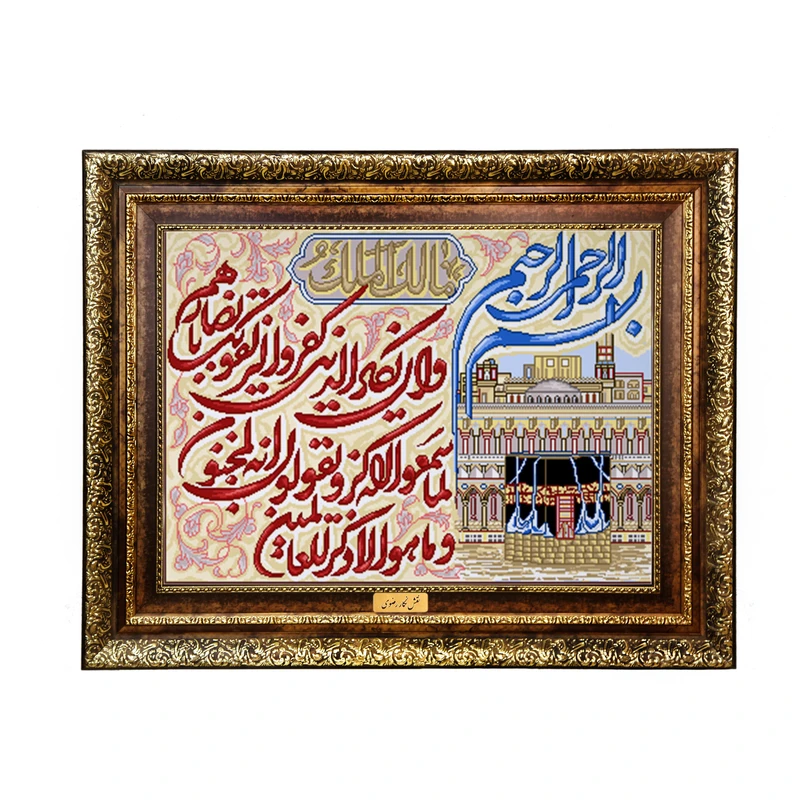 بسم الله الرحمن الرحیم
مالک الملک
وان یکاد الذین کفروا لیزلقونک بابصارهم
لما سمعوا الذکر و یقولون انه لمجنون
و ما هو الا ذکر للعالمین
نقش نگار رضوی